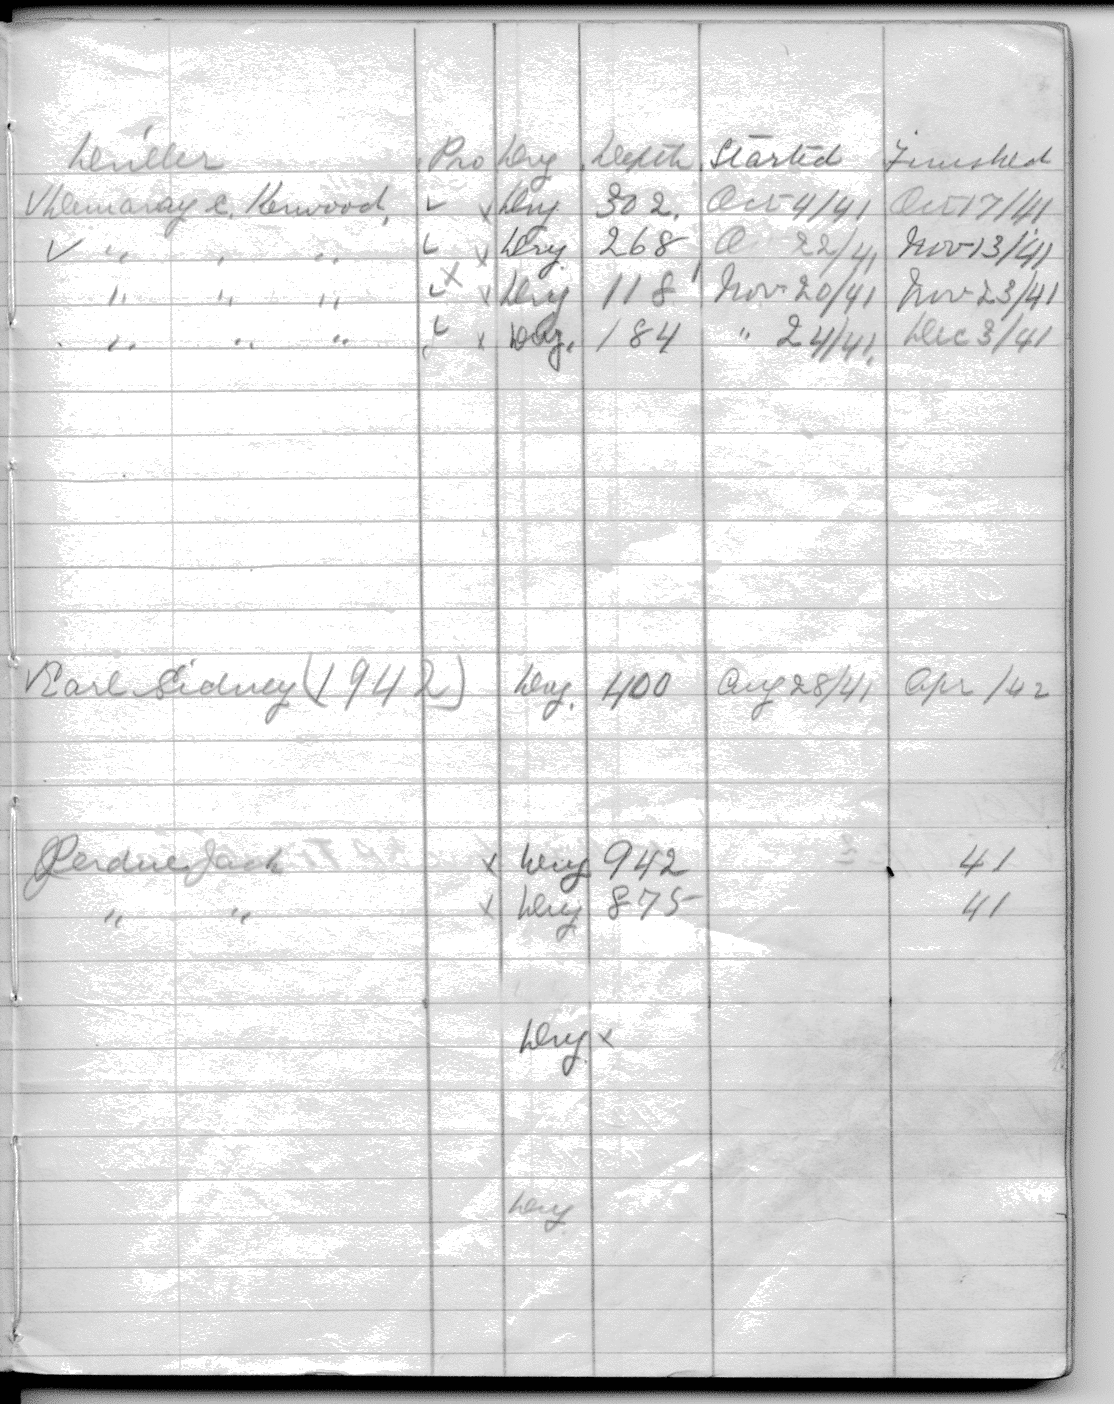 Driller Pro Dry Depth Started Finished
✓ Demaray & Kenwood, ✓ x Dry 302. Oct 4/41 Oct 17/41
✓ " " " ✓ x Dry. 268 O 22/41 Nov 13/41
" " " ✓ x x Dry 118 Nov 20/41 Nov 23/41
" " " ✓ x Dry. 184 " 24/41. Dec 3/41
✓ Earl Sidney (1942) Dry. 400 Aug 28/41 Apr /42
Perdue Jack x Dry 942 41
" " x Dry 875 41
Dry. x
Dry.